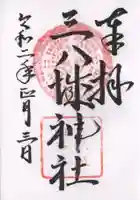 奉拝
三八幡神社
令和二年正月三日